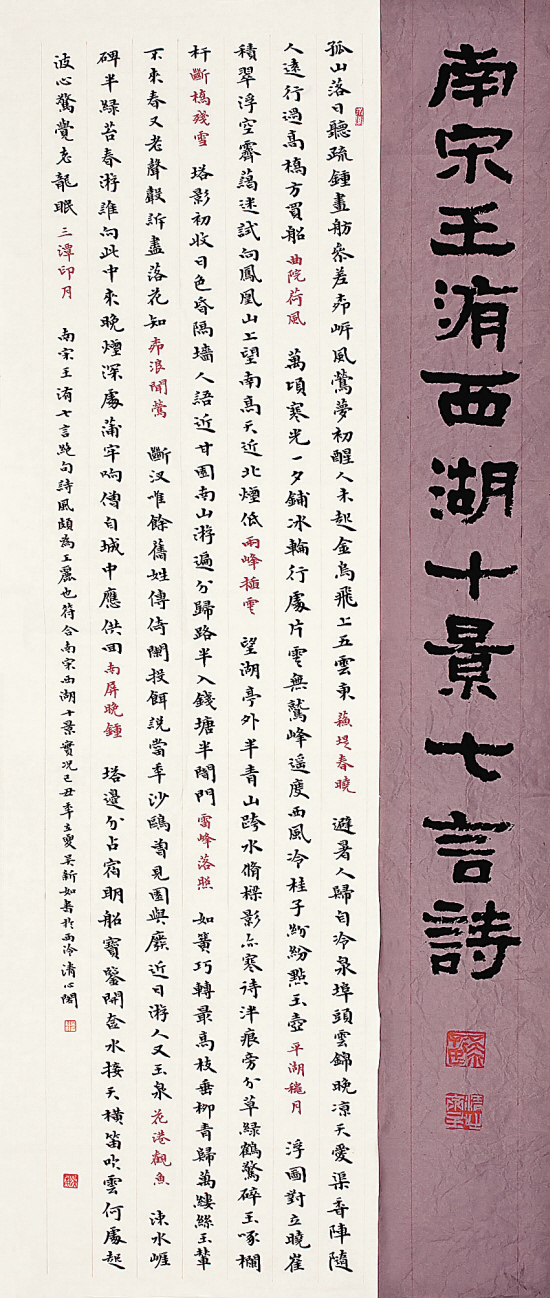 南宋王洧西湖十景七言詩
孤山落日聽疏鍾畫舫參差柳岍風鶯夢初醒人未起金烏飛上五雲東蘇堤春曉 避暑人歸自冷泉埠頭雲錦晚凉天愛渠香陣隨
人遠行過高橋方買船曲院荷風 萬頃寒光一夕鋪冰輪行處片雲無鷲峰遥度西風冷桂子紛紛點玉壺平湖秋月 浮圖對立曉崔
積翠浮空霽藹迷試向鳳凰山上望南高天近北煙低兩峰插雲 望湖亭外半青山跨水脩樑影亦寒待泮痕旁分草緑鶴驚碎玉啄欄
杆斷橋殘雪 塔影初收日色昏隔墻人語近甘園南山游遍分歸路半入錢塘半闇門雷峰落照 如簧巧轉最高枝垂柳青歸萬縷絲玉輦
不來春又老聲聲訴盡落花知柳浪聞鶯 斷汊唯餘舊姓傳倚闌投餌説當年沙鷗曽見園興廢近日游人又玉泉花港觀魚 涑水崕
碑半緑苔春游誰向此中來晚煙深處蒲牢响傳自城中應供回南屏晚鍾 塔邊分占宿明船寶鑒開奩水接天横笛吹雲何處起
波心驚覺老龍眠三潭印月 南宗王洧七言絶句詩風頗為工麗也符合南宋西湖十景實况己丑年立夏吴新如書於西泠清心閣